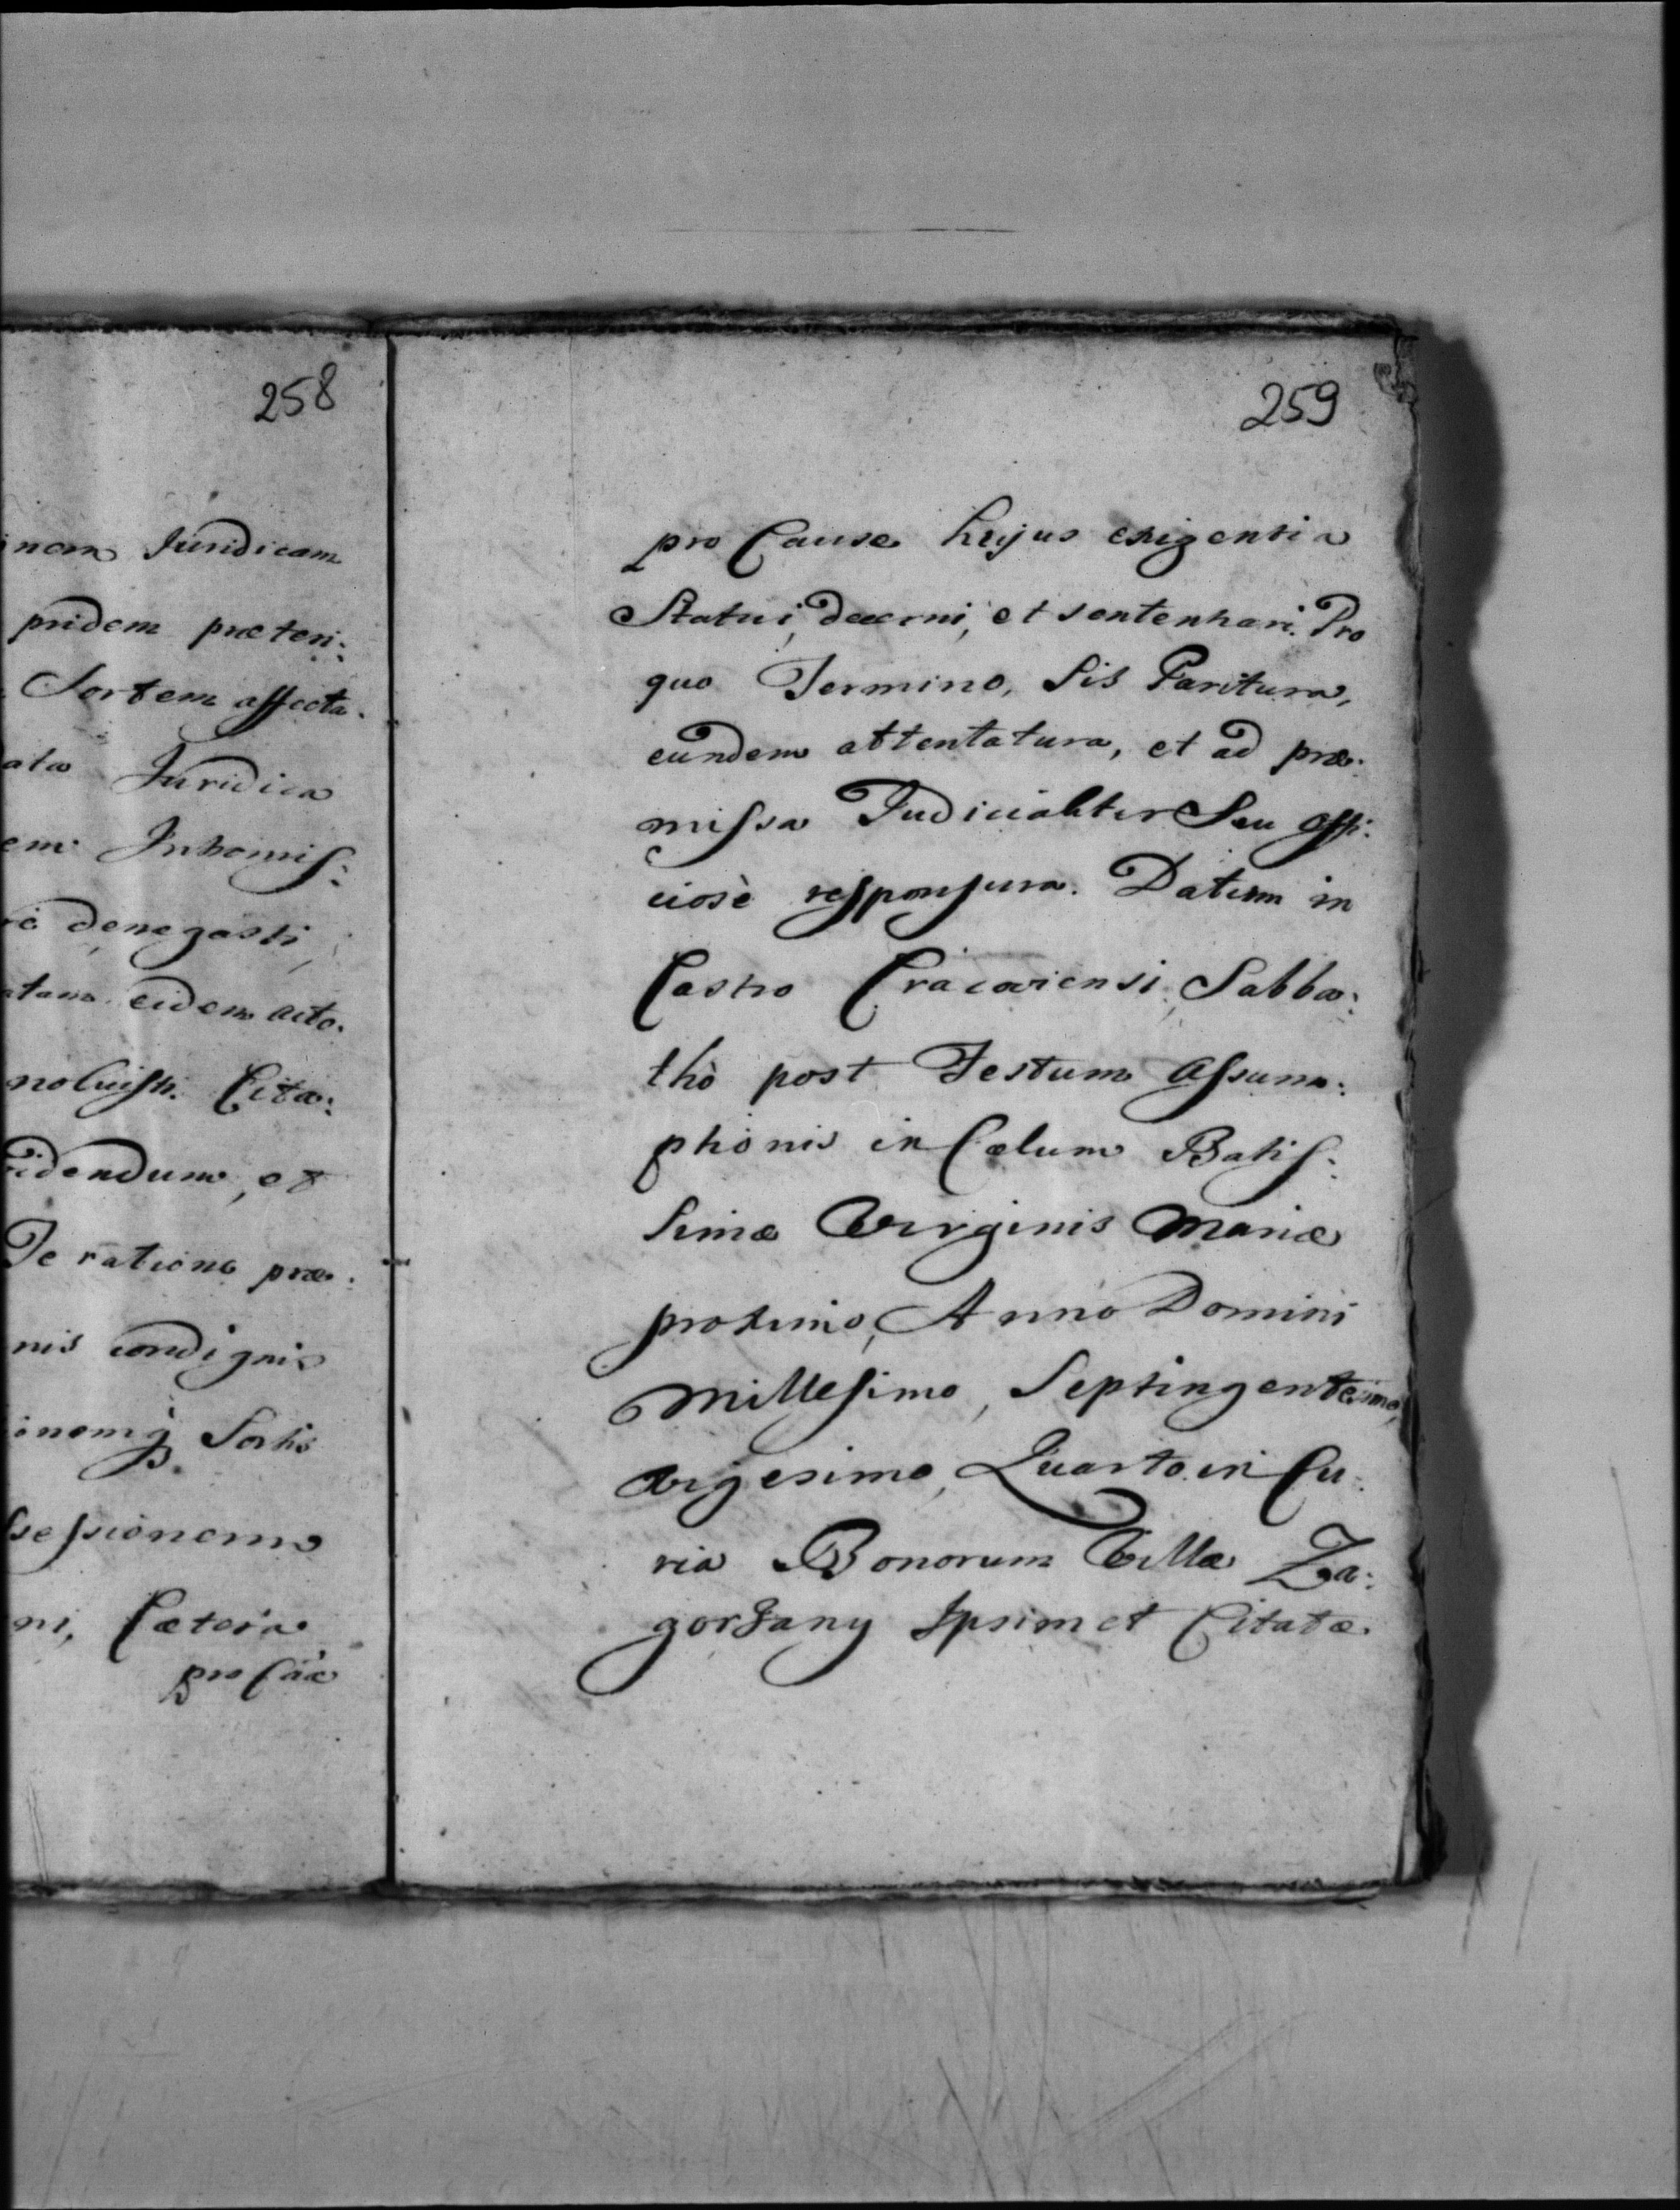 258
Juridicam
pridem præteri:
Sortem affecta.
Juridica
Intromis:
denegasti,
eidem acto.
noluisti. Cita:
videndum, et
Te ratione præ:
nis condignis
Sortis
sessionem
ni, Cætera
pro Cáæ
259
pro Causæ hujus exigentia
Statui, decerni, et sententiari. Pro
quo Termino, Sis Paritura,
eundem attentatura, et ad præ:
missa Judicialiter Seu Offi:
ciosè responsura. Datum in
Castro Cracoviensi, Sabba:
thò post Festum Assum:
ptionis in Cælum Batis:
simæ Virginis Mariæ
proximo, Anno Domini
Millesimo, Septingentesimo,
Vigesimo, Quarto. in Cu:
ria Bonorum Villæ Za:
gorzany Ipsimet Citatæ.